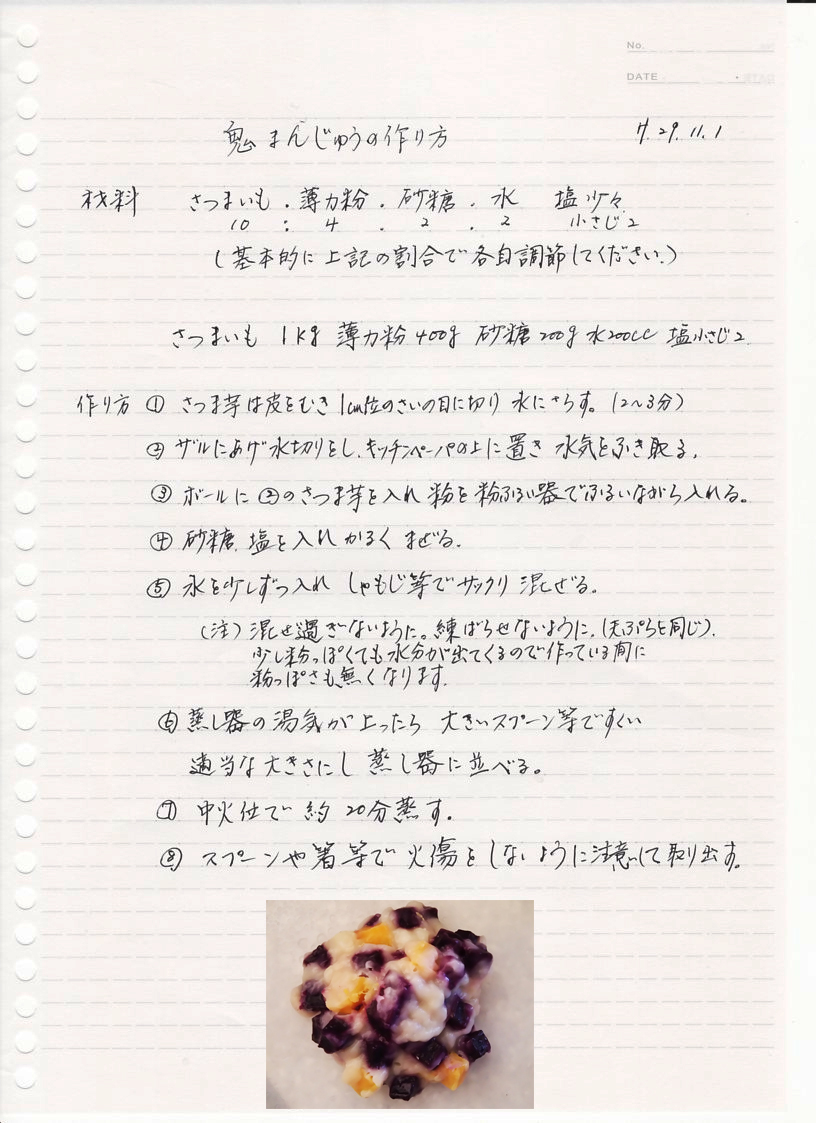 No.
DATE
鬼まんじゅうの作り方 H.29.11.1
材料 さつまいも . 薄力粉 . 砂糖 . 水 塩少々
10 : 4 . 2 . 2 小さじ2
(基本的に上記の割合で各自調節してください。)
さつまいも 1kg 薄力粉400g 砂糖200g 水200cc 塩小さじ2
作り方 ① さつま芋は皮をむき 1cm位のさいの目に切り 水にさらす。(2〜3分)
② ザルにあげ水切りをし、キッチンペーパーの上に置き 水気をふき取る。
③ ボールに②のさつま芋を入れ 粉を粉ふるい器でふるいながら入れる。
④ 砂糖、塩を入れ かるく まぜる。
⑤ 水を少しずつ入れ しゃもじ等でサックリ 混ぜる。
(注) 混ぜ過ぎないように。練ばらせないように。(天ぷらと同じ)。
少し粉っぽくても水分が出てくるので作っている間に
粉っぽさも無くなります。
⑥ 蒸し器の湯気が上ったら 大きいスプーン等ですくい
適当な大きさにし 蒸し器に並べる。
⑦ 中火位で 約 20分蒸す。
⑧ スプーンや箸等で 火傷をしないように注意して取り出す。